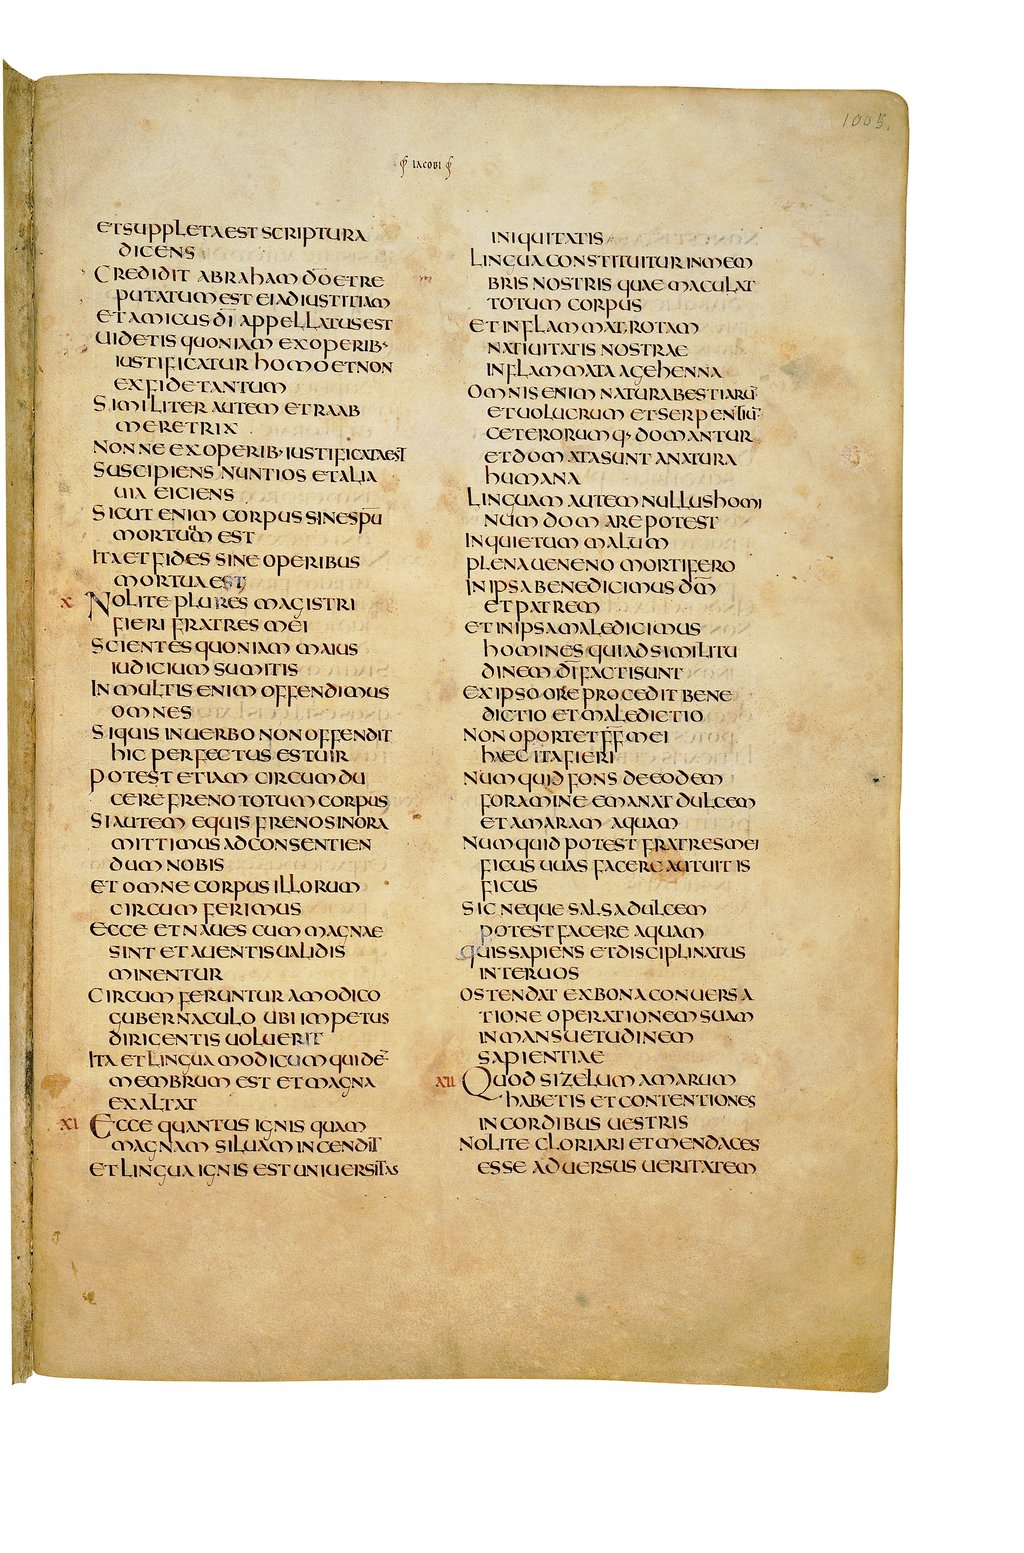 1005.
IACOBI
ETSUPPLETAEST SCRIPTURA
DICENS
CREDIDIT ABRAHAM DO ETRE
PUTATUM EST EI AD IUSTITIAM
ET AMICUS DI APPELLATUS EST
UIDETIS QUONIAM EX OPERIB·
IUSTIFICATUR HOMO ET NON
EX FIDE TANTUM
SIMILITER AUTEM ET RAAB
MERETRIX
NONNE EX OPERIB· IUSTIFICATAEST
SUSCIPIENS NUNTIOS ET ALIA
UIA EICIENS
SICUT ENIM CORPUS SINE SPU
MORTUUM EST
ITA ET FIDES SINE OPERIBUS
MORTUA EST
X NOLITE PLURES MAGISTRI
FIERI FRATRES MEI
SCIENTES QUONIAM MAIUS
IUDICIUM SUMITIS
IN MULTIS ENIM OFFENDIMUS
OMNES
SI QUIS IN UERBO NON OFFENDIT
HIC PERFECTUS EST UIR
POTEST ETIAM CIRCUMDU
CERE FRENO TOTUM CORPUS
SI AUTEM EQUIS FRENOS IN ORA
MITTIMUS AD CONSENTIEN
DUM NOBIS
ET OMNE CORPUS ILLORUM
CIRCUMFERIMUS
ECCE ET NAUES CUM MAGNAE
SINT ET A UENTIS UALIDIS
MINENTUR
CIRCUMFERUNTUR A MODICO
GUBERNACULO UBI IMPETUS
DIRIGENTIS UOLUERIT
ITA ET LINGUA MODICUM QUIDE
MEMBRUM EST ET MAGNA
EXALTAT
XI ECCE QUANTUS IGNIS QUAM
MAGNAM SILUAM INCENDIT
ET LINGUA IGNIS EST UNIUERSITAS
INIQUITATIS
LINGUA CONSTITUITUR IN MEM
BRIS NOSTRIS QUAE MACULAT
TOTUM CORPUS
ET INFLAMMAT ROTAM
NATIUITATIS NOSTRAE
INFLAMMATA A GEHENNA
OMNIS ENIM NATURA BESTIARU
ET UOLUCRUM ET SERPENTIU
CETERORUMQ· DOMANTUR
ET DOMATA SUNT A NATURA
HUMANA
LINGUAM AUTEM NULLUS HOMI
NUM DOMARE POTEST
INQUIETUM MALUM
PLENA UENENO MORTIFERO
IN IPSA BENEDICIMUS DM
ET PATREM
ET IN IPSA MALEDICIMUS
HOMINES QUI AD SIMILITU
DINEM DI FACTI SUNT
EX IPSO ORE PROCEDIT BENE
DICTIO ET MALEDICTIO
NON OPORTET FF MEI
HAEC ITA FIERI
NUMQUID FONS DE EODEM
FORAMINE EMANAT DULCEM
ET AMARAM AQUAM
NUMQUID POTEST FRATRES MEI
FICUS UUAS FACERE AUT UITIS
FICUS
SIC NEQUE SALSA DULCEM
POTEST FACERE AQUAM
QUIS SAPIENS ET DISCIPLINATUS
INTER UOS
OSTENDAT EX BONA CONUERSA
TIONE OPERATIONEM SUAM
IN MANSUETUDINEM
SAPIENTIAE
XII QUOD SI ZELUM AMARUM
HABETIS ET CONTENTIONES
IN CORDIBUS UESTRIS
NOLITE GLORIARI ET MENDACES
ESSE ADUERSUS UERITATEM